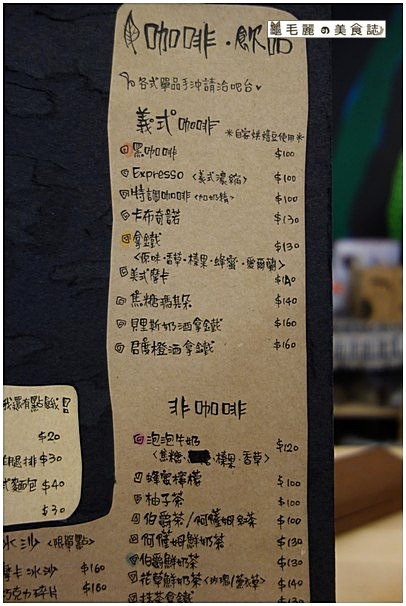 咖啡．飲品
毛麗の美食誌
各式單品手沖請洽吧台
義式咖啡
*自家烘焙豆使用*
黑咖啡 $100
Expresso <義式濃縮> $100
特調咖啡 <加奶精> $100
卡布奇諾 $130
拿鐵 $130
<原味·香草·榛果·蜂蜜·愛爾蘭>
美式摩卡 $140
焦糖瑪其朵 $140
貝里斯奶酒拿鐵 $160
君度橙酒拿鐵 $160
非咖啡
泡泡牛奶 $120
<焦糖· ·榛果·香草>
蜂蜜檸檬 $100
柚子茶 $100
伯爵茶/阿薩姆紅茶 $100
阿薩姆鮮奶茶 $130
伯爵鮮奶茶 $130
花草鮮奶茶 $140
抹茶拿鐵 $130
我還有點餓!
$20
腿排 $30
式麵包 $40
$30
冰沙 <限單點>
摩卡冰沙 $160
巧克力碎片 $180